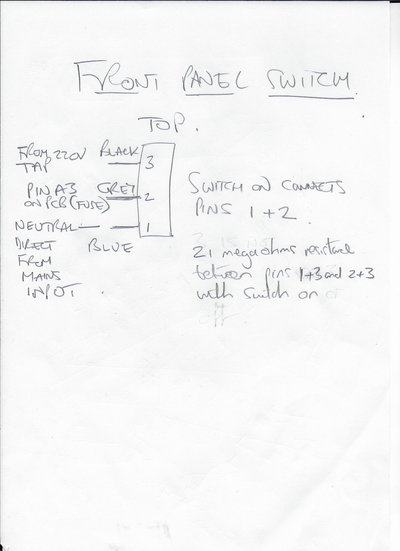 FRONT PANEL SWITCH
TOP.
FROM 220V BLACK 3
TAP
PIN A3 GREY 2
ON PCB (FUSE)
NEUTRAL 1
DIRECT BLUE
FROM
MAINS
INPUT.
SWITCH ON CONNECTS
PINS 1 + 2.
21 megaohms resistance
between pins 1+3 and 2+3
with switch on